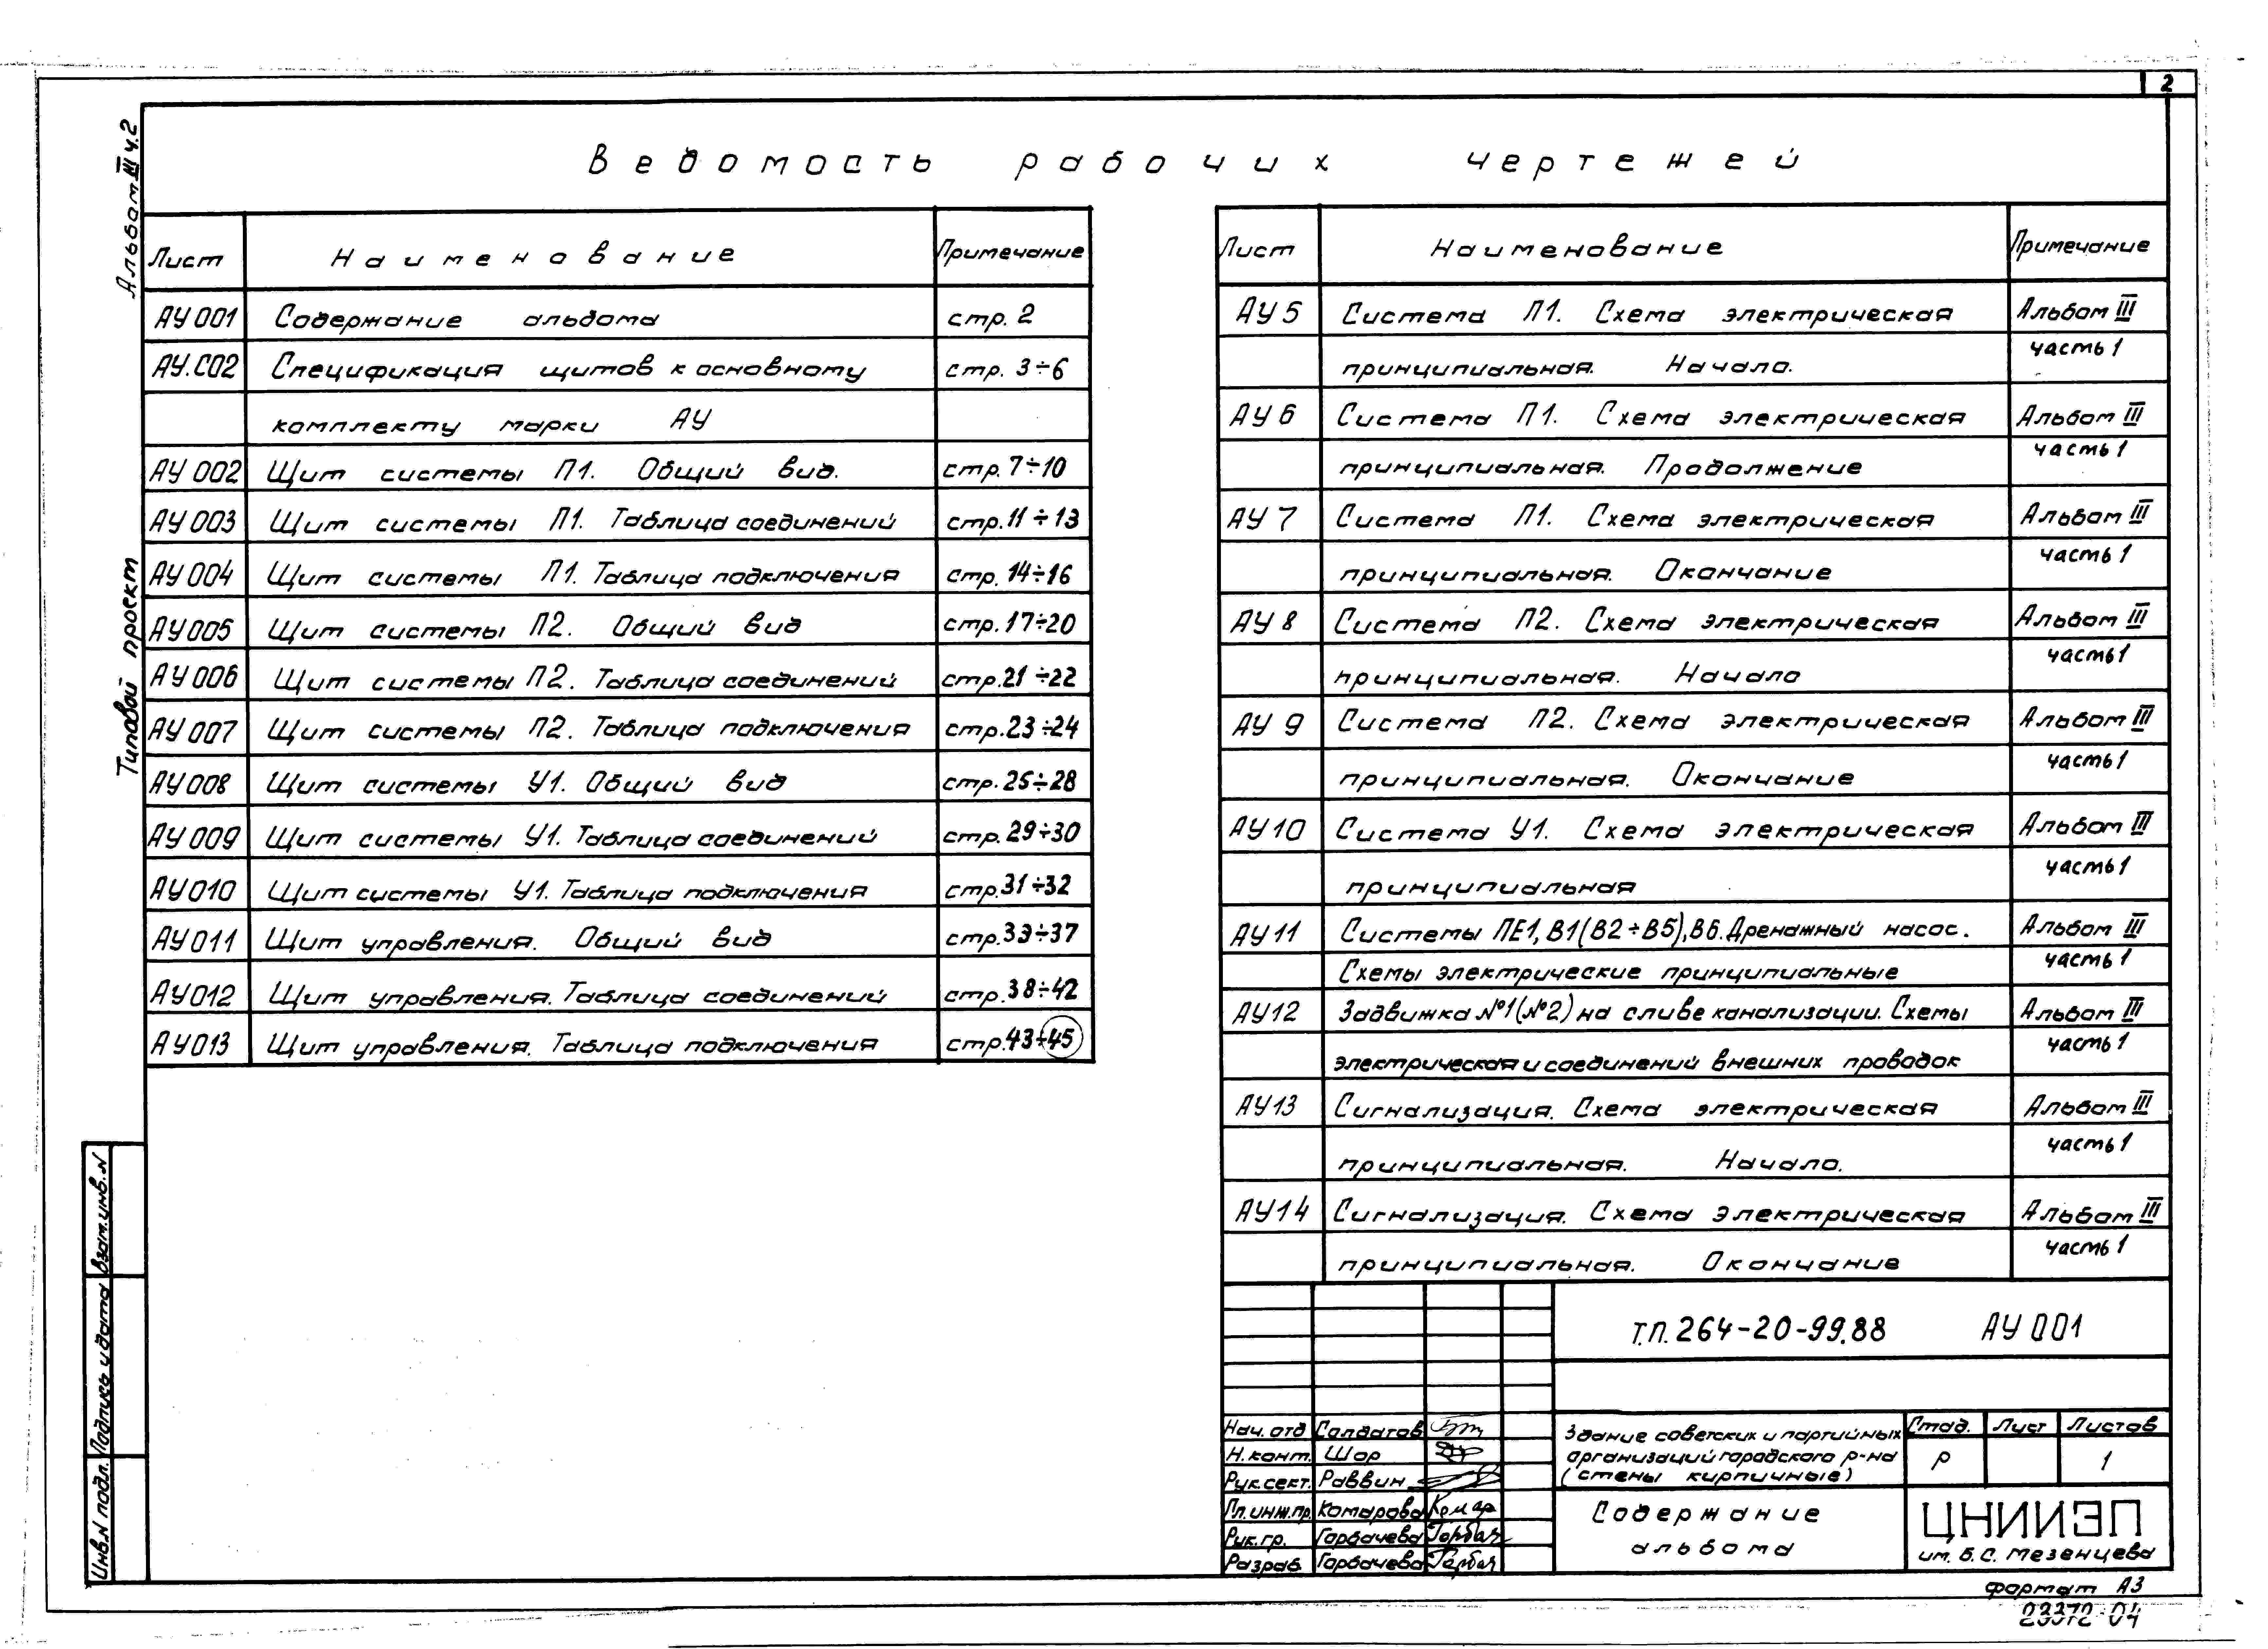 2
Альбом III ч.2
Типовой проект
Ведомость рабочих чертежей
Лист Наименование Примечание
АУ001 Содержание альбома стр. 2
АУ.СО2 Спецификация щитов к основному стр. 3÷6
комплекту марки АУ
АУ002 Щит системы П1. Общий вид. стр. 7÷10
АУ003 Щит системы П1. Таблица соединений стр. 11÷13
АУ004 Щит системы П1. Таблица подключения стр. 14÷16
АУ005 Щит системы П2. Общий вид стр. 17÷20
АУ006 Щит системы П2. Таблица соединений стр. 21÷22
АУ007 Щит системы П2. Таблица подключения стр. 23÷24
АУ008 Щит системы У1. Общий вид стр. 25÷28
АУ009 Щит системы У1. Таблица соединений стр. 29÷30
АУ010 Щит системы У1. Таблица подключения стр. 31÷32
АУ011 Щит управления. Общий вид стр. 33÷37
АУ012 Щит управления. Таблица соединений стр. 38÷42
АУ013 Щит управления. Таблица подключения стр. 43÷45
Лист Наименование Примечание
АУ5 Система П1. Схема электрическая Альбом III
принципиальная. Начало. часть 1
АУ6 Система П1. Схема электрическая Альбом III
принципиальная. Продолжение часть 1
АУ7 Система П1. Схема электрическая Альбом III
принципиальная. Окончание часть 1
АУ8 Система П2. Схема электрическая Альбом III
принципиальная. Начало часть 1
АУ9 Система П2. Схема электрическая Альбом III
принципиальная. Окончание часть 1
АУ10 Система У1. Схема электрическая Альбом III
принципиальная часть 1
АУ11 Системы ПЕ1, В1(В2÷В5), В6. Дренажный насос. Альбом III
Схемы электрические принципиальные часть 1
АУ12 Задвижка №1(№2) на сливе канализации. Схемы Альбом III
электрическая и соединений внешних проводок часть 1
АУ13 Сигнализация. Схема электрическая Альбом III
принципиальная. Начало. часть 1
АУ14 Сигнализация. Схема электрическая Альбом III
принципиальная. Окончание часть 1
Т.П. 264-20-99.88 АУ001
Нач. отд Солдатов
Н. конт. Шор
Рук. сект. Раввин
Гл. инж. пр. Комарова Комар
Рук. гр. Горбачева Горбач
Разраб. Горбачева Горбач
Здание советских и партийных
организаций городского р-на
(стены кирпичные)
Стад. Лист Листов
Р 1
Содержание
альбома
ЦНИИЭП
им. Б.С. Мезенцева
Формат А3
23372-04
Взам. инв. N
Подпись и дата
Инв. N подл.